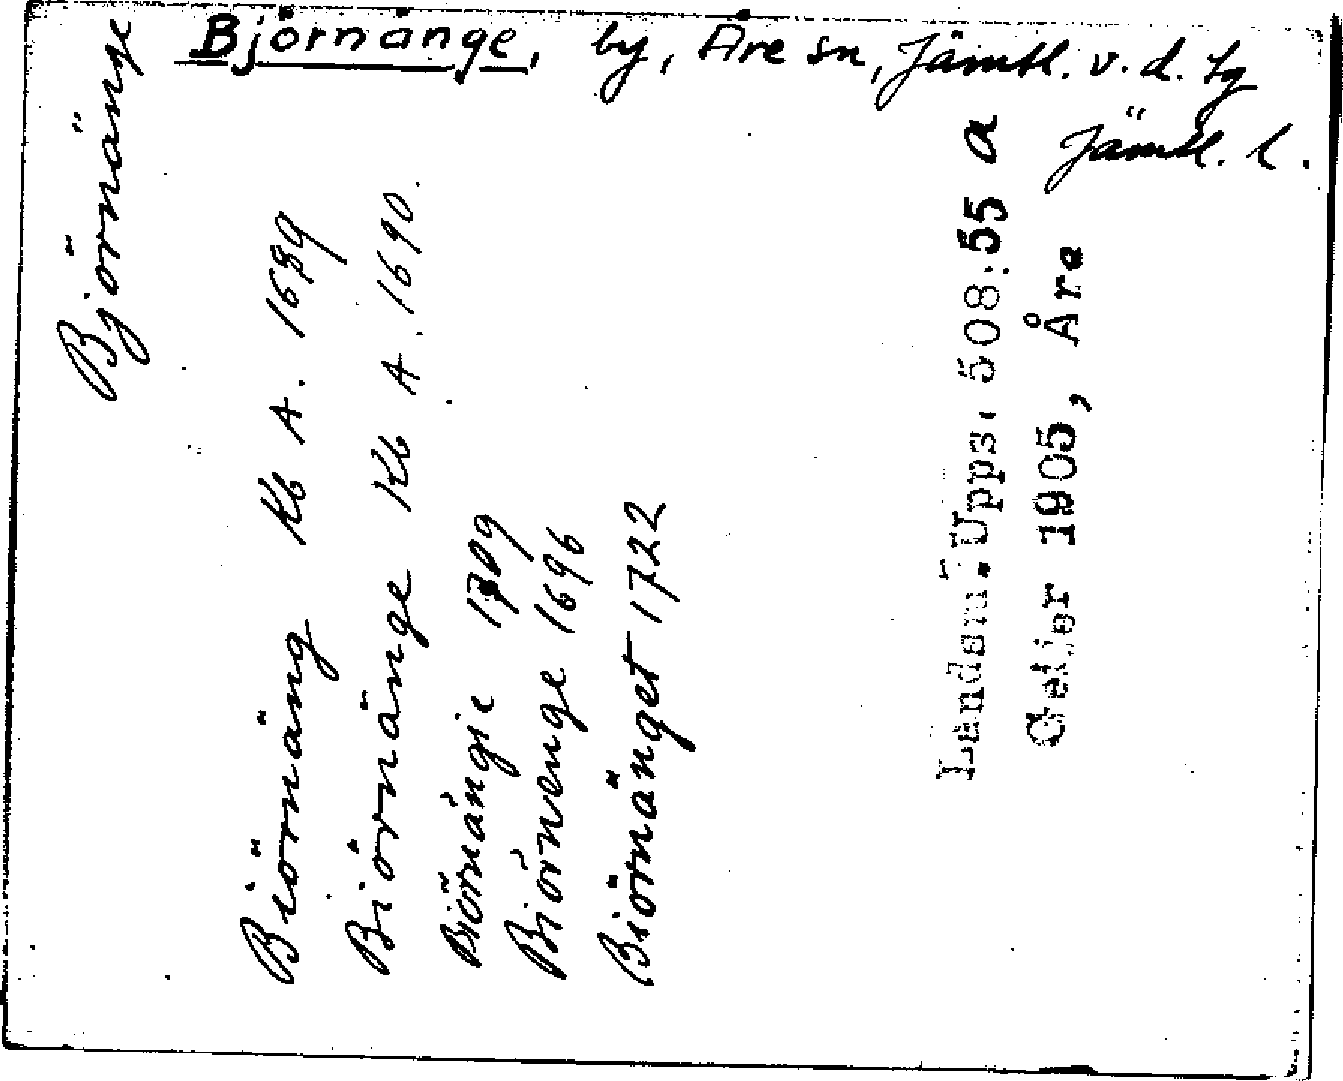 Björnänge, by, Åre sn, Jämtl. v. d. tg
Jämtl. l.
Björnänge
Biörnäng Kb A. 1689
Biörnänge Kb A. 1690.
Biörnängie 1709
Biörnenge 1696
Biörnänget 1722
Landsm. Upps. 508:55 a
Geijer 1905, Åre